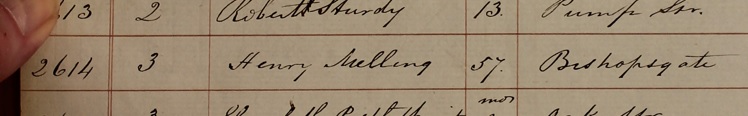 613 2 Robert Sturdy 13. Pump Str.
2614 3 Henry Melling 57. Bishopsgate
3 mos